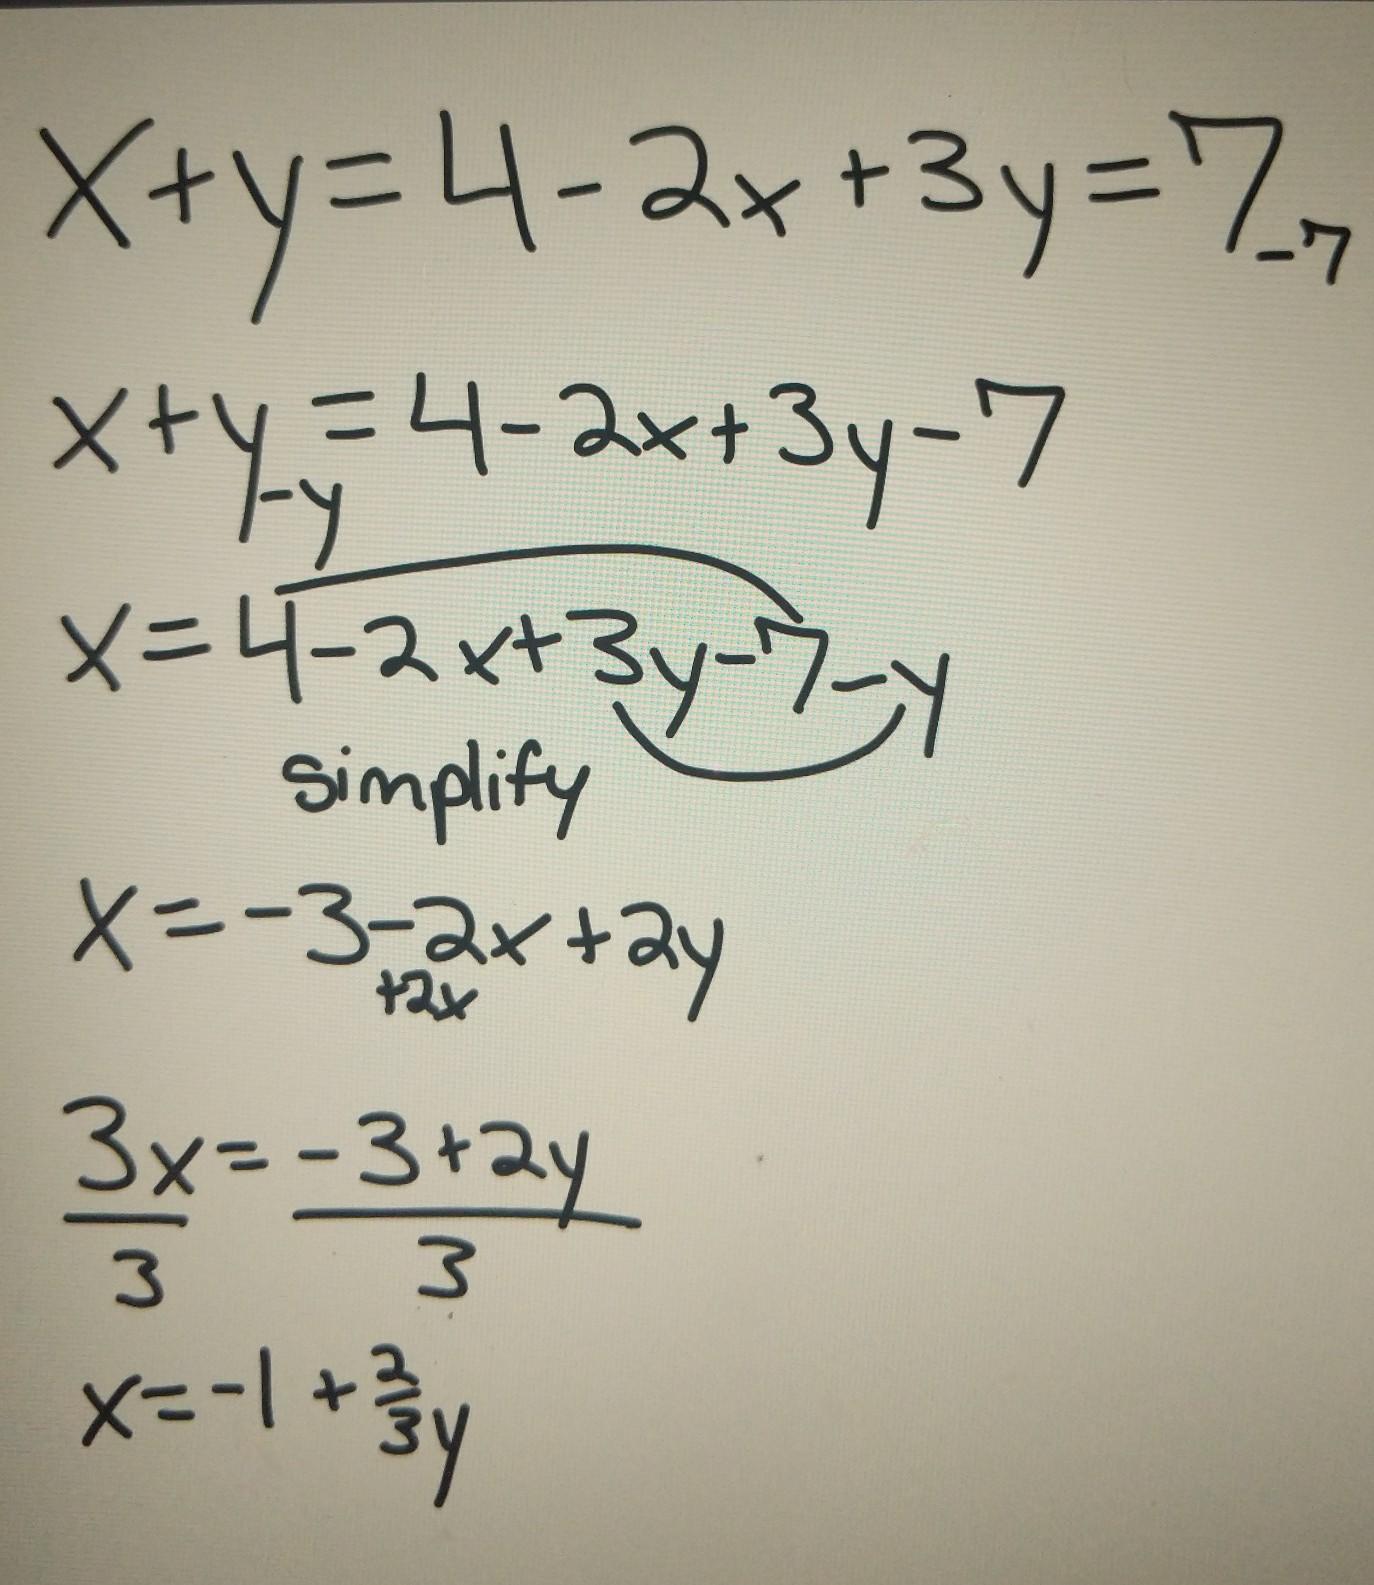 x+y=4-2x+3y=7-7
x+y=4-2x+3y-7
-y
x=4-2x+3y-7-y
simplify
x=-3-2x+2y
+2x
3x=-3+2y
3 3
x=-1+2/3y